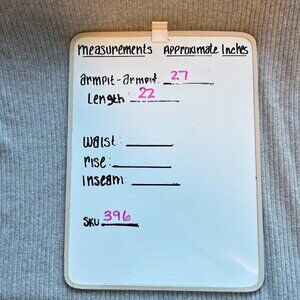 measurements Approximate Inches
armpit-armpit: 27
Length: 22
waist:
rise:
Inseam:
SKU 396